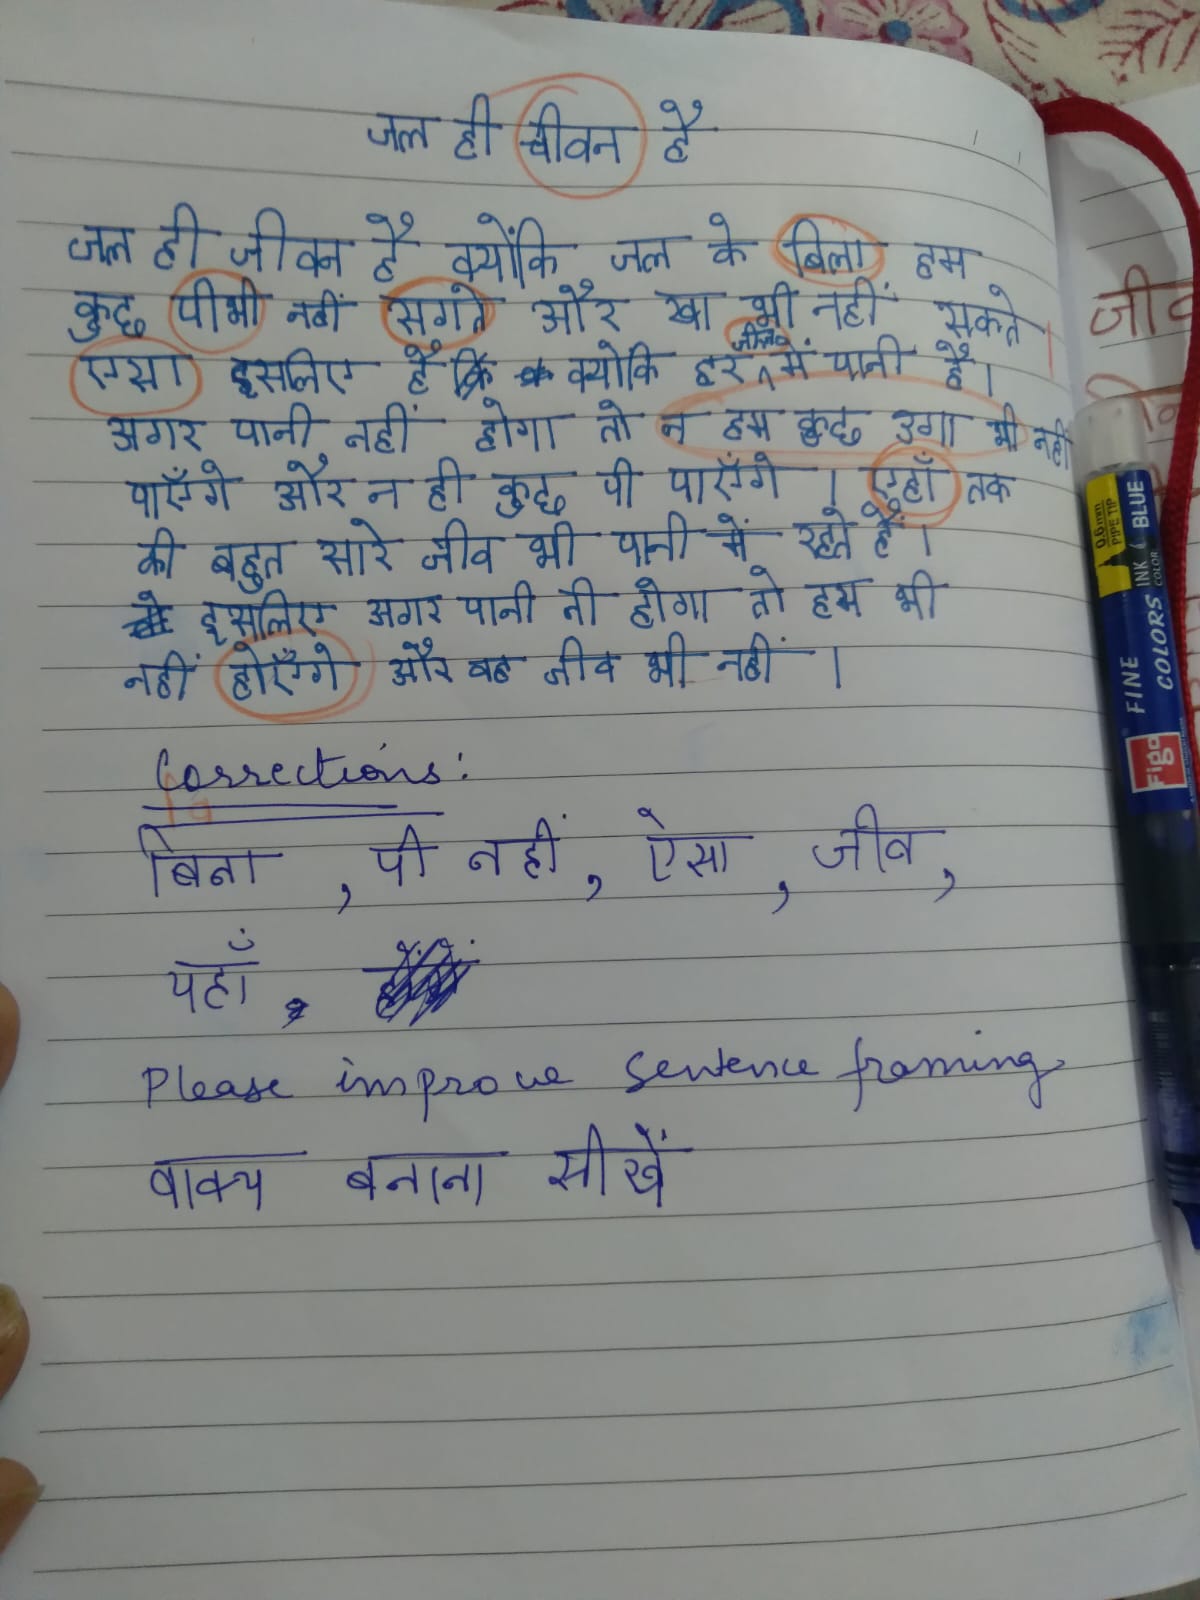 जल ही चीवन है
जल ही जीवन है क्योंकि जल के बिला हम
कुछ पीभी नहीं सगते और खा भी नहीं सकते
एसा इसलिए है क्योकि हर जीव में पानी है।
अगर पानी नहीं होगा तो न हम कुछ उगा भी नही
पाएँगे और न ही कुछ पी पाएँगे । एहाँ तक
की बहुत सारे जीव भी पानी में रहते हैं।
इसलिए अगर पानी नी होगा तो हम भी
नहीं होएँगे और वह जीव भी नहीं ।
Corrections:
बिना , पी नहीं , ऐसा , जीव ,
यहाँ ,
Please improve sentence framing
वाक्य बनाना सीखें
जीव
0.6mm
PIPE TIP
INK BLUE
COLOR
FINE
COLORS
Figo